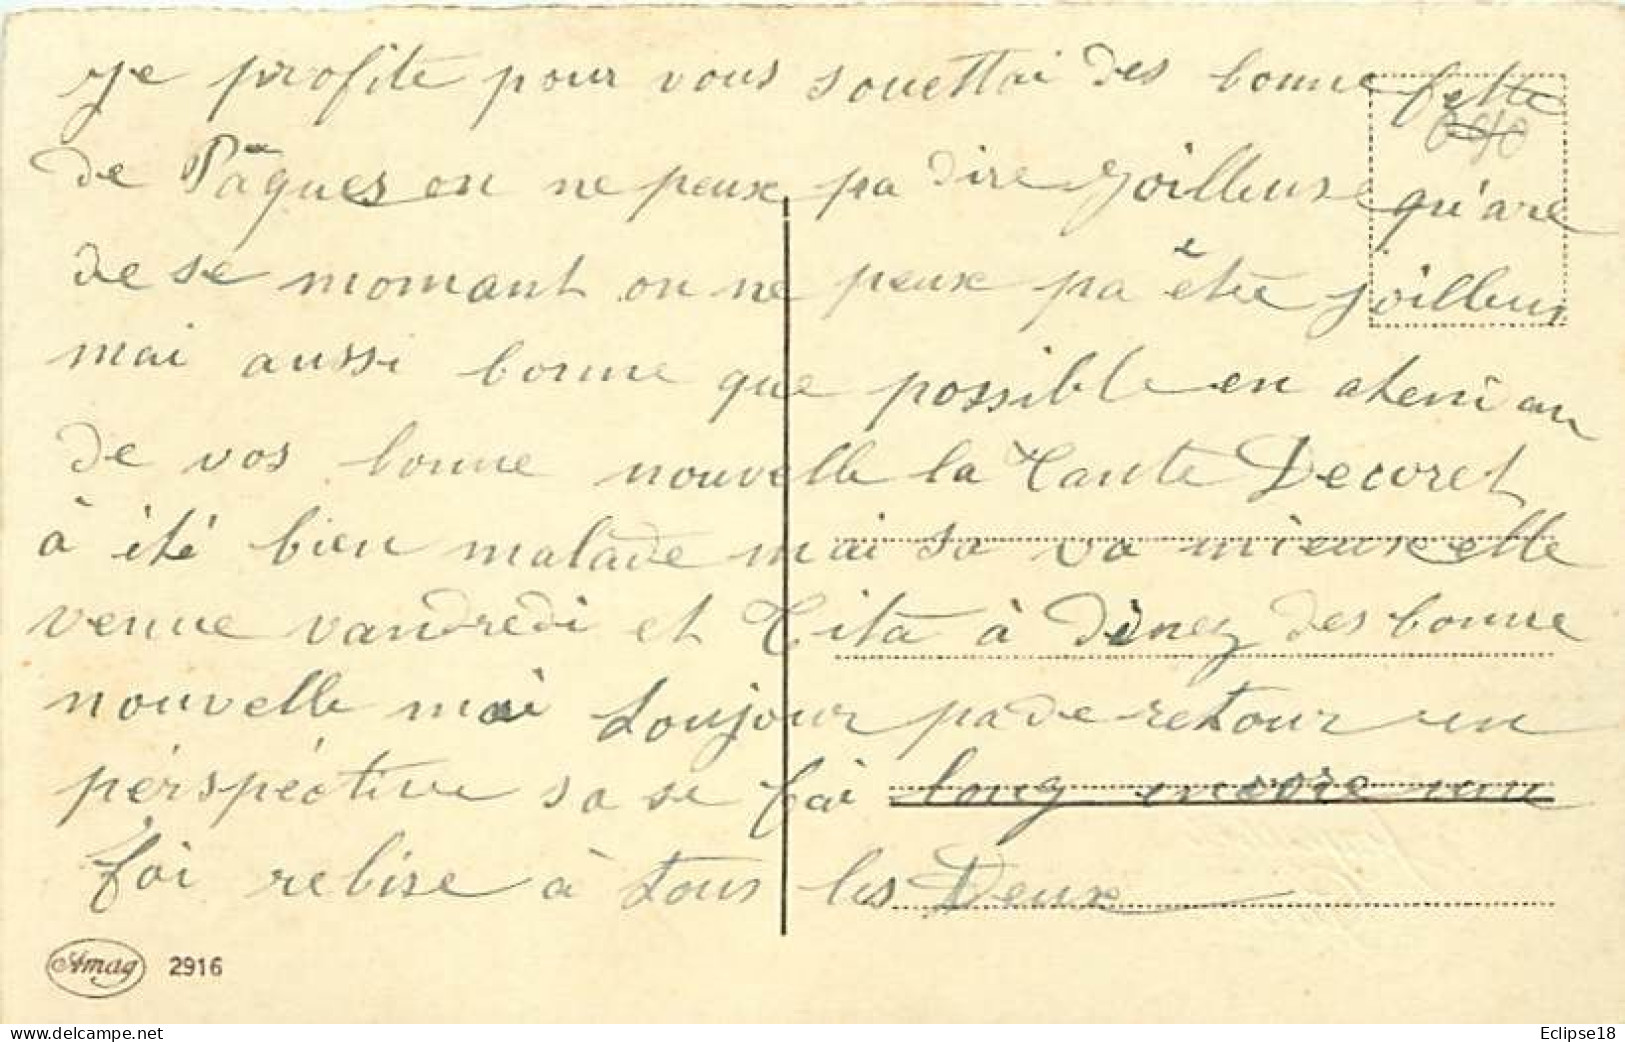 Je profite pour vous souettai des bonne fette
de Pâques on ne peux pa dire Joilleuse qu'are
de se momant on ne peux pa être joilleux
mai aussi bonne que possible en atenian
de vos bonne nouvelle la Tante Decoret
à été bien malade mai sa va mieux elle
venue vandredi et Tita à dinez des bonne
nouvelle mai toujour pa de retour en
pérspéctive sa se fai long encore une
foi rebise à tous les Deux
Amag 2916
Eclipse18